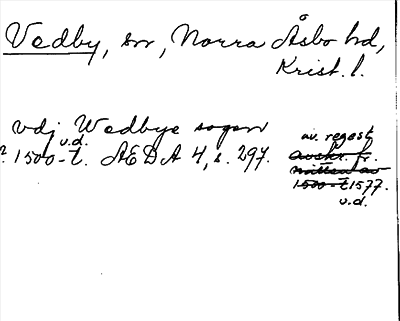 Vedby, sn, Norra Åsbo hd,
Krist. l.
vdj Wedbye sogen
u.d.
1500-t. AEDA 4, s. 297.
av. regest
avskr. fr.
mitten av
1500-t 1577.
u.d.